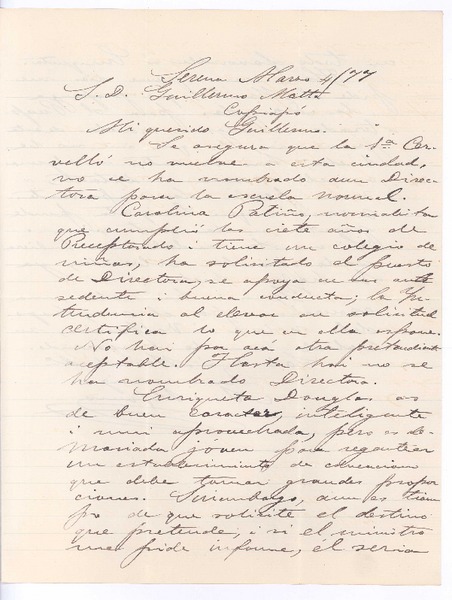 Serena Marzo 4/77
S. D. Guillermo Matta
Copiapó
Mi querido Guillermo.
Se asegura que la 1ª Cer-
velló no vuelve a esta ciudad,
no se ha nombrado aun Direc-
tora para la escuela normal.
Carolina Patiño, normalista
que cumplió los siete años de
Preceptorado i tiene un colegio de
niñas, ha solicitado el puesto
de Directora, se apoya en sus ante
sedente i buena conducta; la In-
tendencia al elevar su solicitud
certifica lo que en ella espone.
No hai por acá otra pretendiente
aceptable. Hasta hoi no se
ha nombrado Directora.
Enriqueta Douglas es
de buen caracter, inteligente
i mui aprovechada, pero es de-
masiado jóven para regentear
un establecimiento de
que debe tomar grandes propor
ciones. Sinembargo, aun es tiem
po de que solicite el destino
que pretende, i si el ministro
me pide informe, él seria